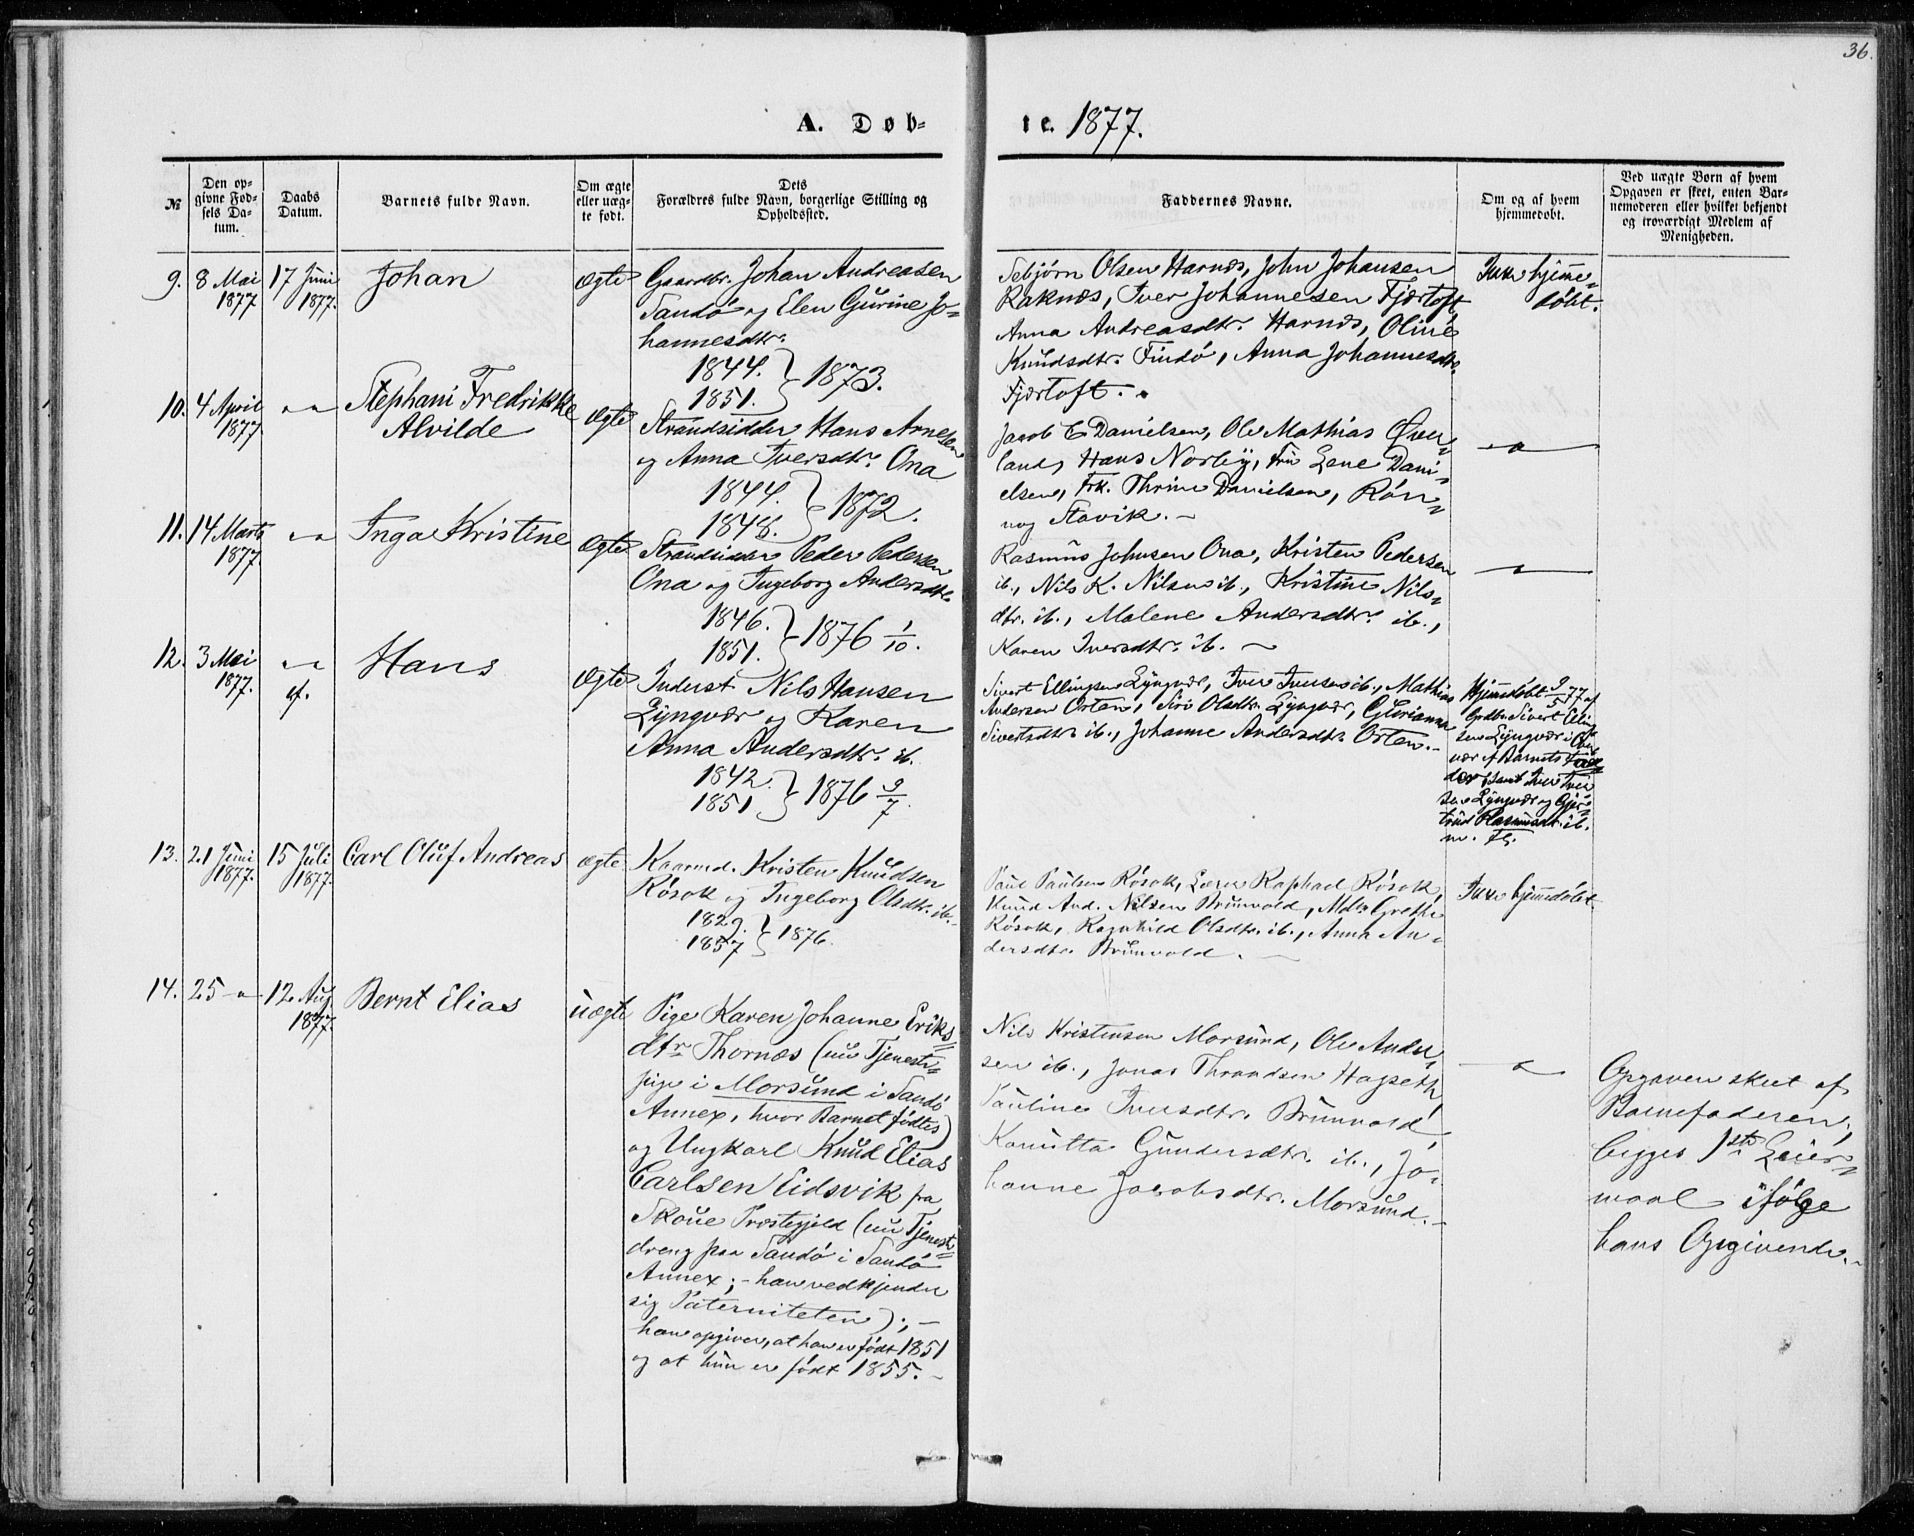 36.
A. Døb-
te. 1877.
№
Den op-
givne Fød-
sels Da-
tum.
Daabs
Datum.
Barnets fulde Navn.
Om ægte
eller uæg-
te født.
Dets
Forældres fulde Navn, borgerlige Stilling og
Opholdssted.
Faddernes Navne.
Om og af hvem
hjemmedøbt.
Ved uægte Børn af hvem
Opgaven er skeet, enten Bar-
nemoderen eller hvilket bekjendt
og troværdigt Medlem af
Menigheden.
9. 8 Mai
1877
17 Juni
1877.
Johan
ægte
Gaardbr. Johan Andreasen
Sandø og Elen Gurine Jo-
hannesdtr.
1844. } 1873.
1851.
Sebjørn Olsen Harnæs, John Johansen
Raknæs, Iver Johannesen Fjærtoft,
Anna Andreasdtr. Harnæs, Oline
Knudsdtr. Findø, Anna Johannesdtr.
Fjærtoft.
Ikke hjemme-
døbt.
10. 4 April
1877.
Stephani Fredrikke
Alvilde
Ægte
Strandsidder Hans Arnesen
og Anna Iversdtr. Ona
1844. } 1872.
1848.
Jacob E Danielsen, Ole Mathias Øver-
land, Hans Norby, Fru Lene Dani-
elsen, Frk. Thrine Danielsen, Røn-
nog Stavik.
11. 14 Marts
1877.
Inga Kristine
Ægte
Strandsidder Peder Pedersen
Ona og Ingeborg Andersdtr.
1846. } 1876 1/10.
1851.
Rasmus Johnsen Ona, Kristen Pedersen
ib., Nils K. Nilsen ib., Kristine Nils-
dtr. ib., Malene Andersdtr. ib.,
Karen Iversdtr. ib.
12. 3 Mai
1877.
ef.
Hans
Ægte
Inderst Nils Hansen
Lyngvær og Karen
Anna Andersdtr. ib.
1842. } 1876 9/7.
1851
Sivert Ellingsen Lyngvær, Iver Iversen ib., Mathias
Andersen Orten, Siri Olsdtr. Lyngvær, Gjerianna
Sivertsdtr. ib., Johanne Andersdtr. Orten.
Hjemmedøbt 9/5 77 af
Grdbr. Sivert Elling-
sen Lyngvær i Over-
vær af Barnets Fæd-
der samt Iver Iver-
sen Lyngvær og Gjer-
trud Rasmusdtr. ib.
m. Fl.
13. 21 Juni
1877.
15 Juli
1877.
Carl Oluf Andreas
ægte
Kaarmd. Kristen Knudsen
Røsok og Ingeborg Olsdtr. ib.
1829. } 1876.
1857
Paul Paulsen Røsok, Lærer Raphael Røsok,
Knud And. Nilsen Brunvold, Mdm Grethe
Røsok, Ragnhild Olsdtr. ib., Anna An-
dersdtr. Brunvold.
Ikke hjemmedøbt.
14. 25
12. Aug
1877.
Bernt Elias
uægte
Pige Karen Johanne Eriks-
dtr Thornæs (nu Tjeneste-
pige i Morsund i Sandø
Annex, hvor Barnet fødtes)
og Ungkarl Knud Elias
Carlsen Eidsvik fra
Skoue Præstegjeld (nu Tjeneste-
dreng paa Sandø i Sandø
Annex; - han vedkjender
sig Paterniteten); -
han opgiver, at han er født 1851
og at hun er født 1855.
Nils Kristensen Morsund, Ole Ander-
sen ib., Jonas Throndsen Hagseth,
Pauline Iversdtr. Brunvold,
Kanutta Gundersdtr. ib., Jo-
hanne Jacobsdtr. Morsund.
Opgaven skeet af
Barnefaderen;
begges 1ste Leier-
maal ifølge
hans Opgivende.